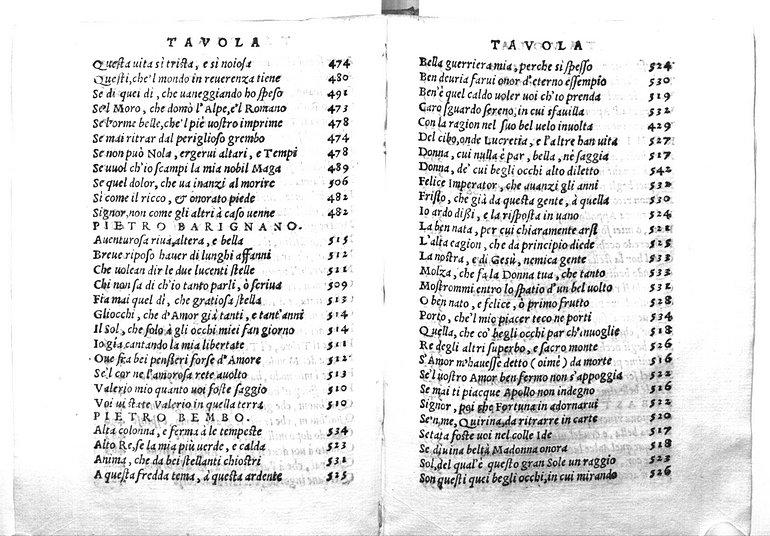 TAVOLA
Questa uita sì trista, e sì noiosa 474
Questi, che'l mondo in reuerenza tiene 480
Se di quei dì, che uaneggiando hò speso 491
Se'l Moro, che domò l'Alpe, e'l Romano 473
Se l'orme belle, che'l piè uostro imprime 478
Se mai ritrar dal periglioso grembo 474
Se non può Nola, ergerui altari, e Tempi 478
Se uuol ch'io scampi la mia nobil Maga 489
Se quel dolor, che ua inanzi al morire 506
Sì come il ricco, & onorato piede 482
Signor, non come gli altri à caso uenne 482
PIETRO BARIGNANO.
Auenturosa riua, altera, e bella 515
Breue riposo hauer di lunghi affanni 512
Che uolean dir le due lucenti stelle 511
Chi non sa di ch'io tanto parli, ò scriua 509
Fia mai quel dì, che gratiosa stella 513
Gliocchi, che d'Amor già tanti, e tant'anni 514
Il Sol, che solo à gli occhi miei fan giorno 514
Io già cantando la mia libertate 511
Oue fra bei pensieri forse d'Amore 512
Se'l cor ne l'amorosa rete auolto 513
Valerio mio quanto uoi foste saggio 510
Voi ui state Valerio in quella terra 510
PIETRO BEMBO.
Alta colonna, e ferma à le tempeste 534
Alto Re, se la mia più uerde, e calda 523
Anima, che da bei stellanti chiostri 531
A questa fredda tema, à questa ardente 525
TAVOLA
Bella guerriera mia, perche sì spesso 524
Ben deuria farui onor d'eterno essempio 530
Ben'è quel caldo uoler uoi ch'io prenda 519
Caro sguardo sereno, in cui sfauilla 532
Con la ragion nel suo bel uelo inuolta 429
Del cibo, onde Lucretia, e l'altre han uita 527
Donna, cui nulla è par, bella, nè saggia 517
Donna, de' cui begli occhi alto diletto 542
Felice Imperator, che auanzi gli anni 532
Frisio, che già da questa gente, à quella 530
Io ardo dißi, e la risposta in uano 524
La ben nata, per cui chiaramente arsi 521
L'alta cagion, che da principio diede 525
La nostra, e di Gesù, nemica gente 533
Molza, che fa la Donna tua, che tanto 533
Mostrommi entro lo spatio d'un bel uolto 531
O ben nato, e felice, ò primo frutto 528
Porto, che'l mio piacer teco ne porti 534
Quella, che co' begli occhi par ch'inuoglie 518
Re degli altri superbo, e sacro monte 526
S'Amor m'hauesse detto (oimè) da morte 516
Se'l uostro Amor ben fermo non s'appoggia 522
Se mai ti piacque Apollo non indegno 526
Signor, poi che Fortuna in adornarui 522
Se'n me, Quirina, da ritrarre in carte 520
Se tata foste uoi nel colle Ide 517
Se diuina beltà Madonna onora 518
Sol, del qual'è questo gran Sole un raggio 523
Son questi quei begli occhi, in cui mirando 526